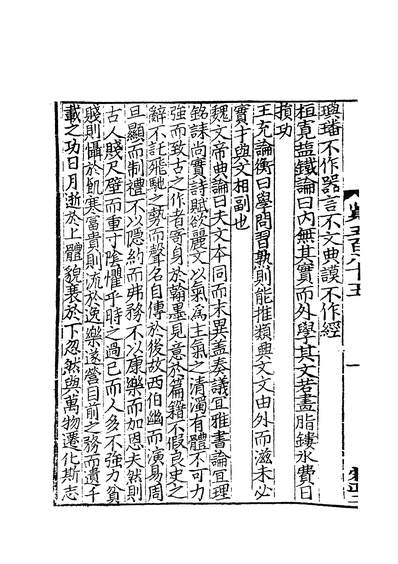 覽五百八十五
一
璵璠不作器言不文典謨不作經
桓寬鹽鐵論曰内無其實而外學其文若畫脂鏤水費日
損功
王充論衡曰學問習熟則能推類興文文由外而滋未必
實才與文相副也
魏文帝典論曰夫文本同而末異盖奏議宜雅書論宜理
銘誄尚實詩賦欲麗文以氣為主氣之清濁有體不可力
強而致古之作者寄身於翰墨見意於篇籍不假良史之
辭不託飛馳之勢而聲名自傳於後故西伯幽而演易周
旦顯而制禮不以隱約而弗務不以康樂而加恩夫然則
古人賤尺璧而重寸陰懼乎時之過已而人多不強力貧
賤則懾於飢寒富貴則流於逸樂遂營目前之務而遺千
載之功日月逝於上體貌衰於下忽然與萬物遷化斯志